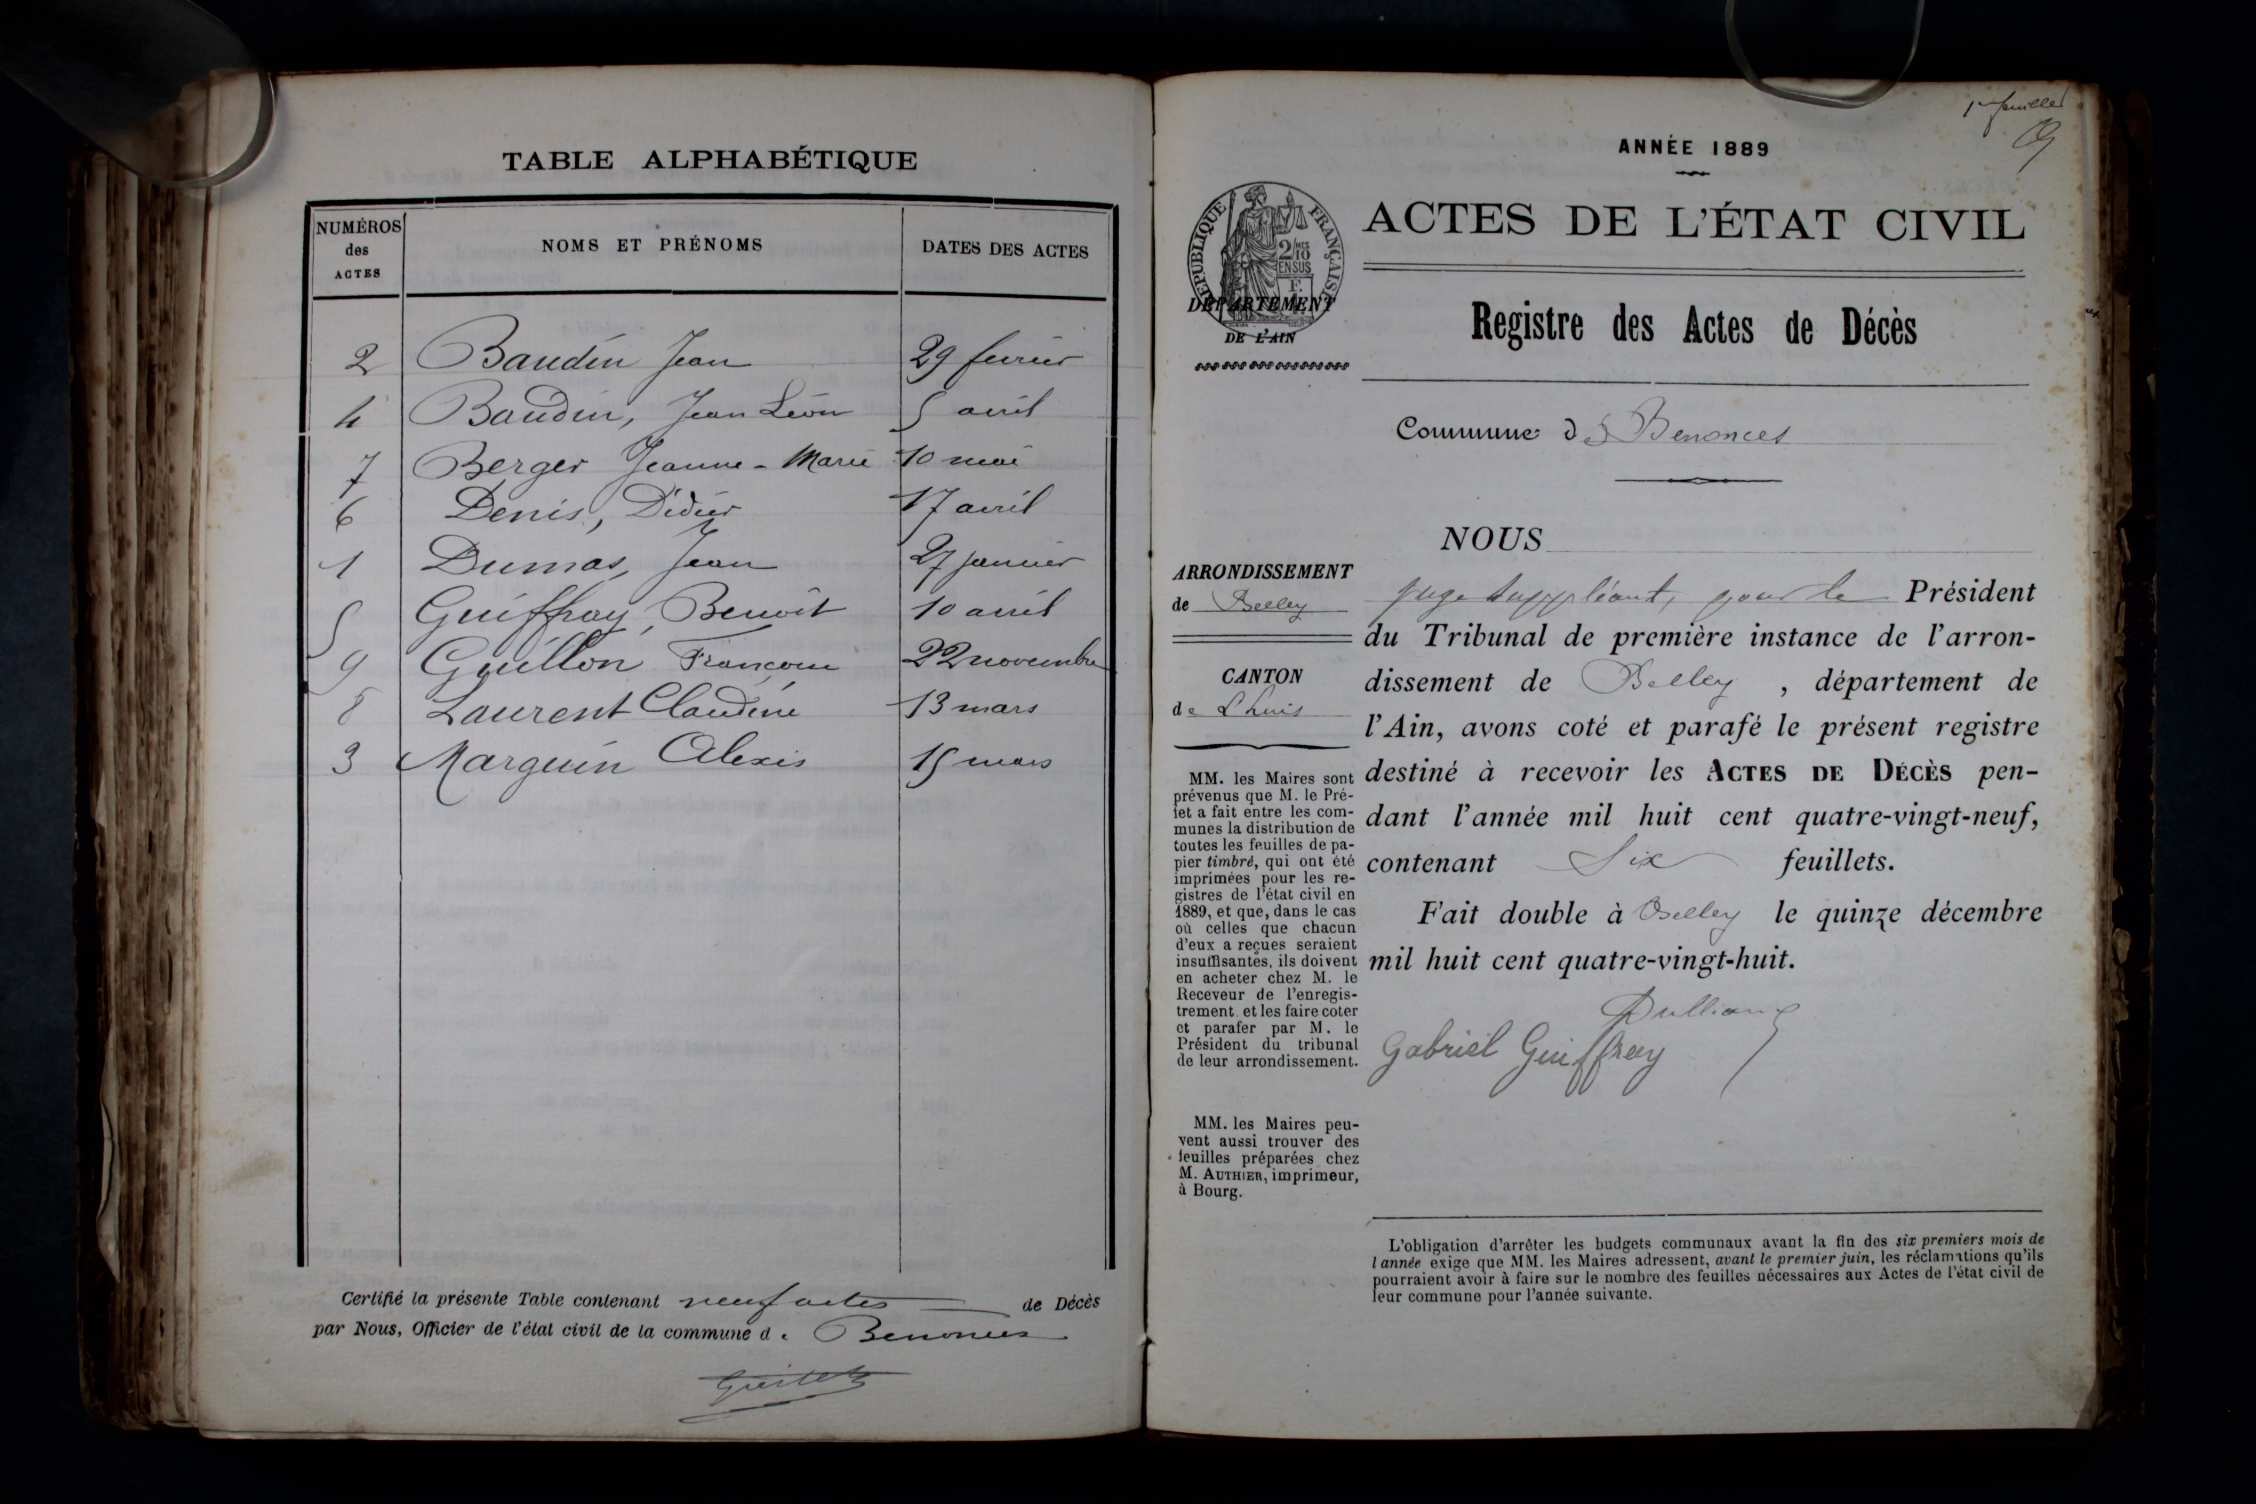 TABLE ALPHABÉTIQUE
NUMÉROS des ACTES NOMS ET PRÉNOMS DATES DES ACTES
2 Baudin Jean 29 fevrier
4 Baudin, Jean Léon 5 avril
7 Berger Jeanne-Marie 10 mai
6 Denis, Didier 17 avril
1 Dumas, Jean 27 janvier
5 Guiffray, Benoit 10 avril
9 Guillon 22 novembre
8 Laurent Claudine 13 mars
3 Marguin Alexis 15 mars
Certifié la présente Table contenant neuf actes de Décès
par Nous, Officier de l'état civil de la commune de Benonces
1er feuillet
ANNÉE 1889
RÉPUBLIQUE FRANÇAISE
2/10 EN SUS
ACTES DE L'ÉTAT CIVIL
DÉPARTEMENT
DE L'AIN
Registre des Actes de Décès
Commune de Benonces
NOUS
juge suppléant, pour le Président
du Tribunal de première instance de l'arron-
dissement de Belley, département de
l'Ain, avons coté et parafé le présent registre
destiné à recevoir les ACTES DE DÉCÈS pen-
dant l'année mil huit cent quatre-vingt-neuf,
contenant Six feuillets.
Fait double à Belley le quinze décembre
mil huit cent quatre-vingt-huit.
Gabriel Guiffray
ARRONDISSEMENT
de Belley
CANTON
de Lhuis
MM. les Maires sont
prévenus que M. le Pré-
fet a fait entre les com-
munes la distribution de
toutes les feuilles de pa-
pier timbré, qui ont été
imprimées pour les re-
gistres de l'état civil en
1889, et que, dans le cas
où celles que chacun
d'eux a reçues seraient
insuffisantes, ils doivent
en acheter chez M. le
Receveur de l'enregis-
trement et les faire coter
et parafer par M. le
Président du tribunal
de leur arrondissement.
MM. les Maires peu-
vent aussi trouver des
feuilles préparées chez
M. AUTHIER, imprimeur,
à Bourg.
L'obligation d'arrêter les budgets communaux avant la fin des six premiers mois de
l'année exige que MM. les Maires adressent, avant le premier juin, les réclamations qu'ils
pourraient avoir à faire sur le nombre des feuilles nécessaires aux Actes de l'état civil de
leur commune pour l'année suivante.